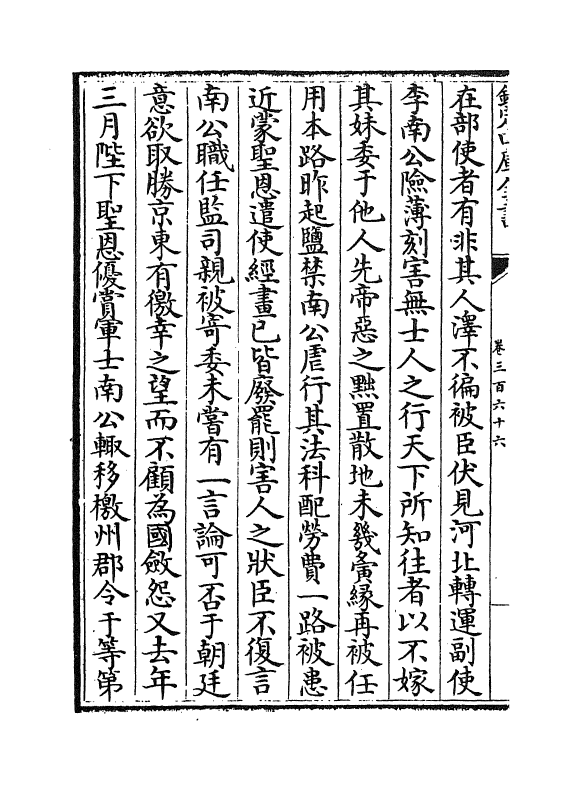 卷三百六十六
在部使者有非其人澤不徧被臣伏見河北轉運副使
李南公險薄刻害無士人之行天下所知往者以不嫁
其妹委于他人先帝惡之黜置散地未幾夤縁再被任
用本路昨起鹽禁南公虐行其法科配勞費一路被患
近蒙聖恩遣使經畫已皆廢罷則害人之狀臣不復言
南公職任監司親被寄委未嘗有一言論可否于朝廷
意欲取勝京東有徼幸之望而不顧為國斂怨又去年
三月陛下聖恩優賞軍士南公輙移檄州郡令于等第